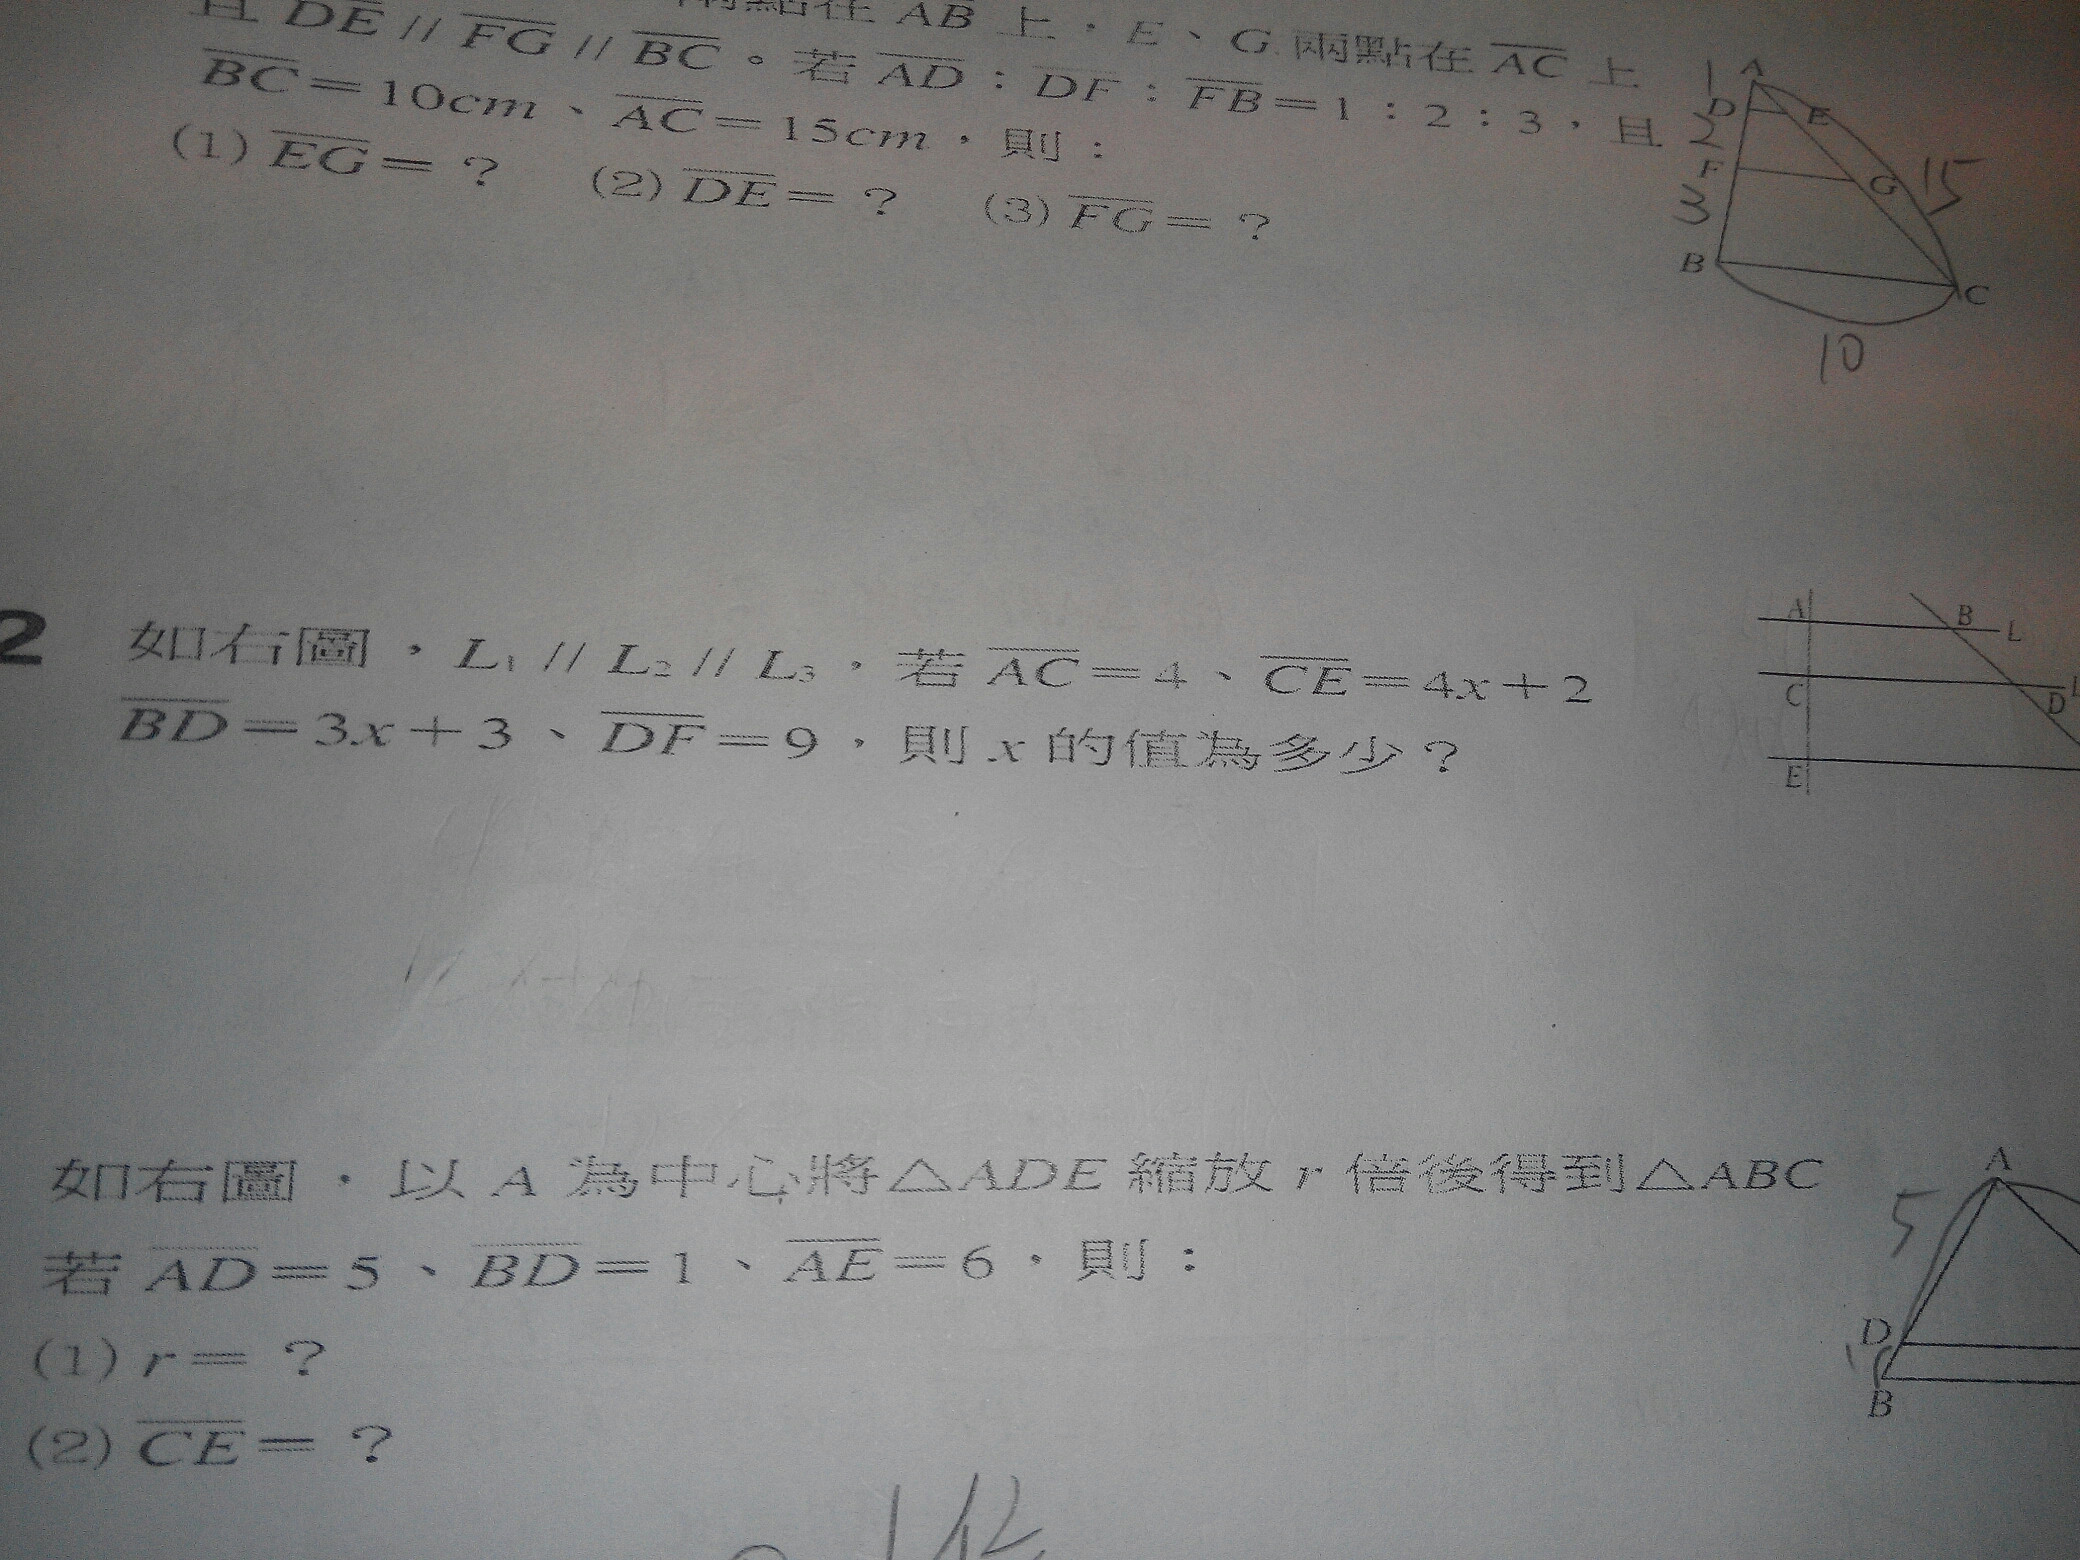 兩點在 AB 上，E、G 兩點在 AC 上
且 DE // FG // BC。若 AD：DF：FB＝1：2：3，且
BC＝10cm、AC＝15cm，則：
(1) EG＝？ (2) DE＝？ (3) FG＝？
1
A
D
E
2
F
G
15
3
B
C
10
2 如右圖，L₁ // L₂ // L₃，若 AC＝4、CE＝4x＋2
BD＝3x＋3、DF＝9，則 x 的值為多少？
A
B
L
C
D
L
E
如右圖，以 A 為中心將△ADE 縮放 r 倍後得到△ABC
若 AD＝5、BD＝1、AE＝6，則：
(1) r＝？
(2) CE＝？
A
5
D
1
B